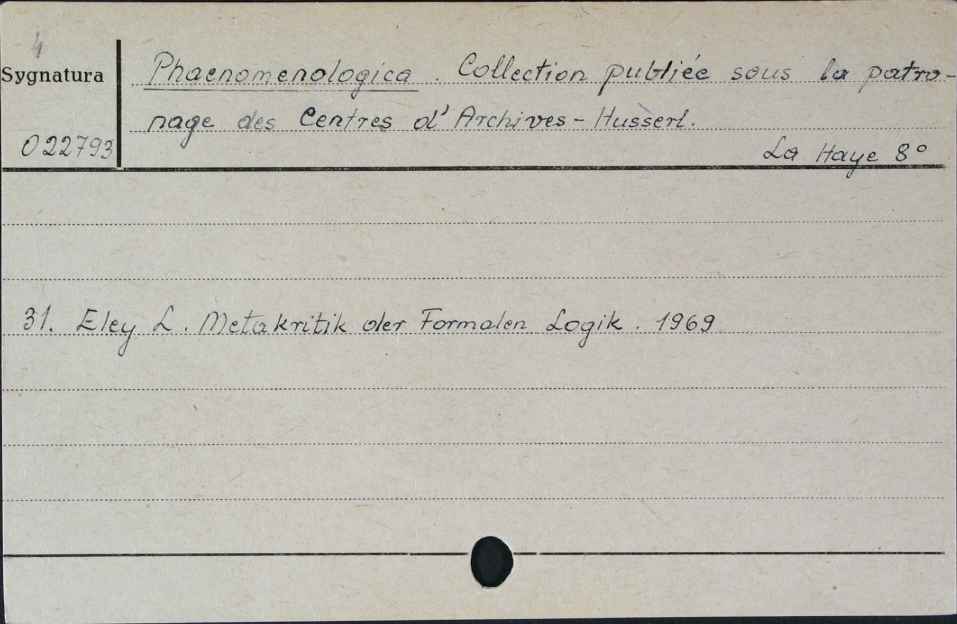 4
Sygnatura
Phaenomenologica. Collection publiée sous la patro-
nage des Centres d'Archives-Husserl.
022793
La Haye 8°
31. Eley L. Metakritik der Formalen Logik. 1969